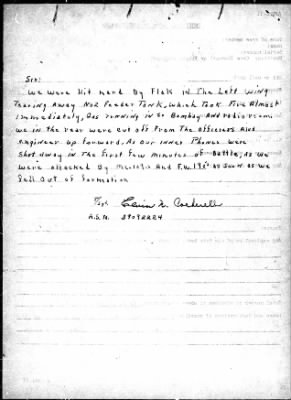 Sir:
We were hit hard By Flak in The Left wing
Tearing Away No2 Feeder Tank, which Took Fire Almost
immediately, Gas running in to Bombay And radio room.
we in the rear were cut off From The officers And
engineer up Forward, As our inner Phones were
shot away in The First Few minutes of Battle, As we
were attacked By Me109s And F.W. 190s as soon as we
Fell out of Formation
A.S.N. 39092224